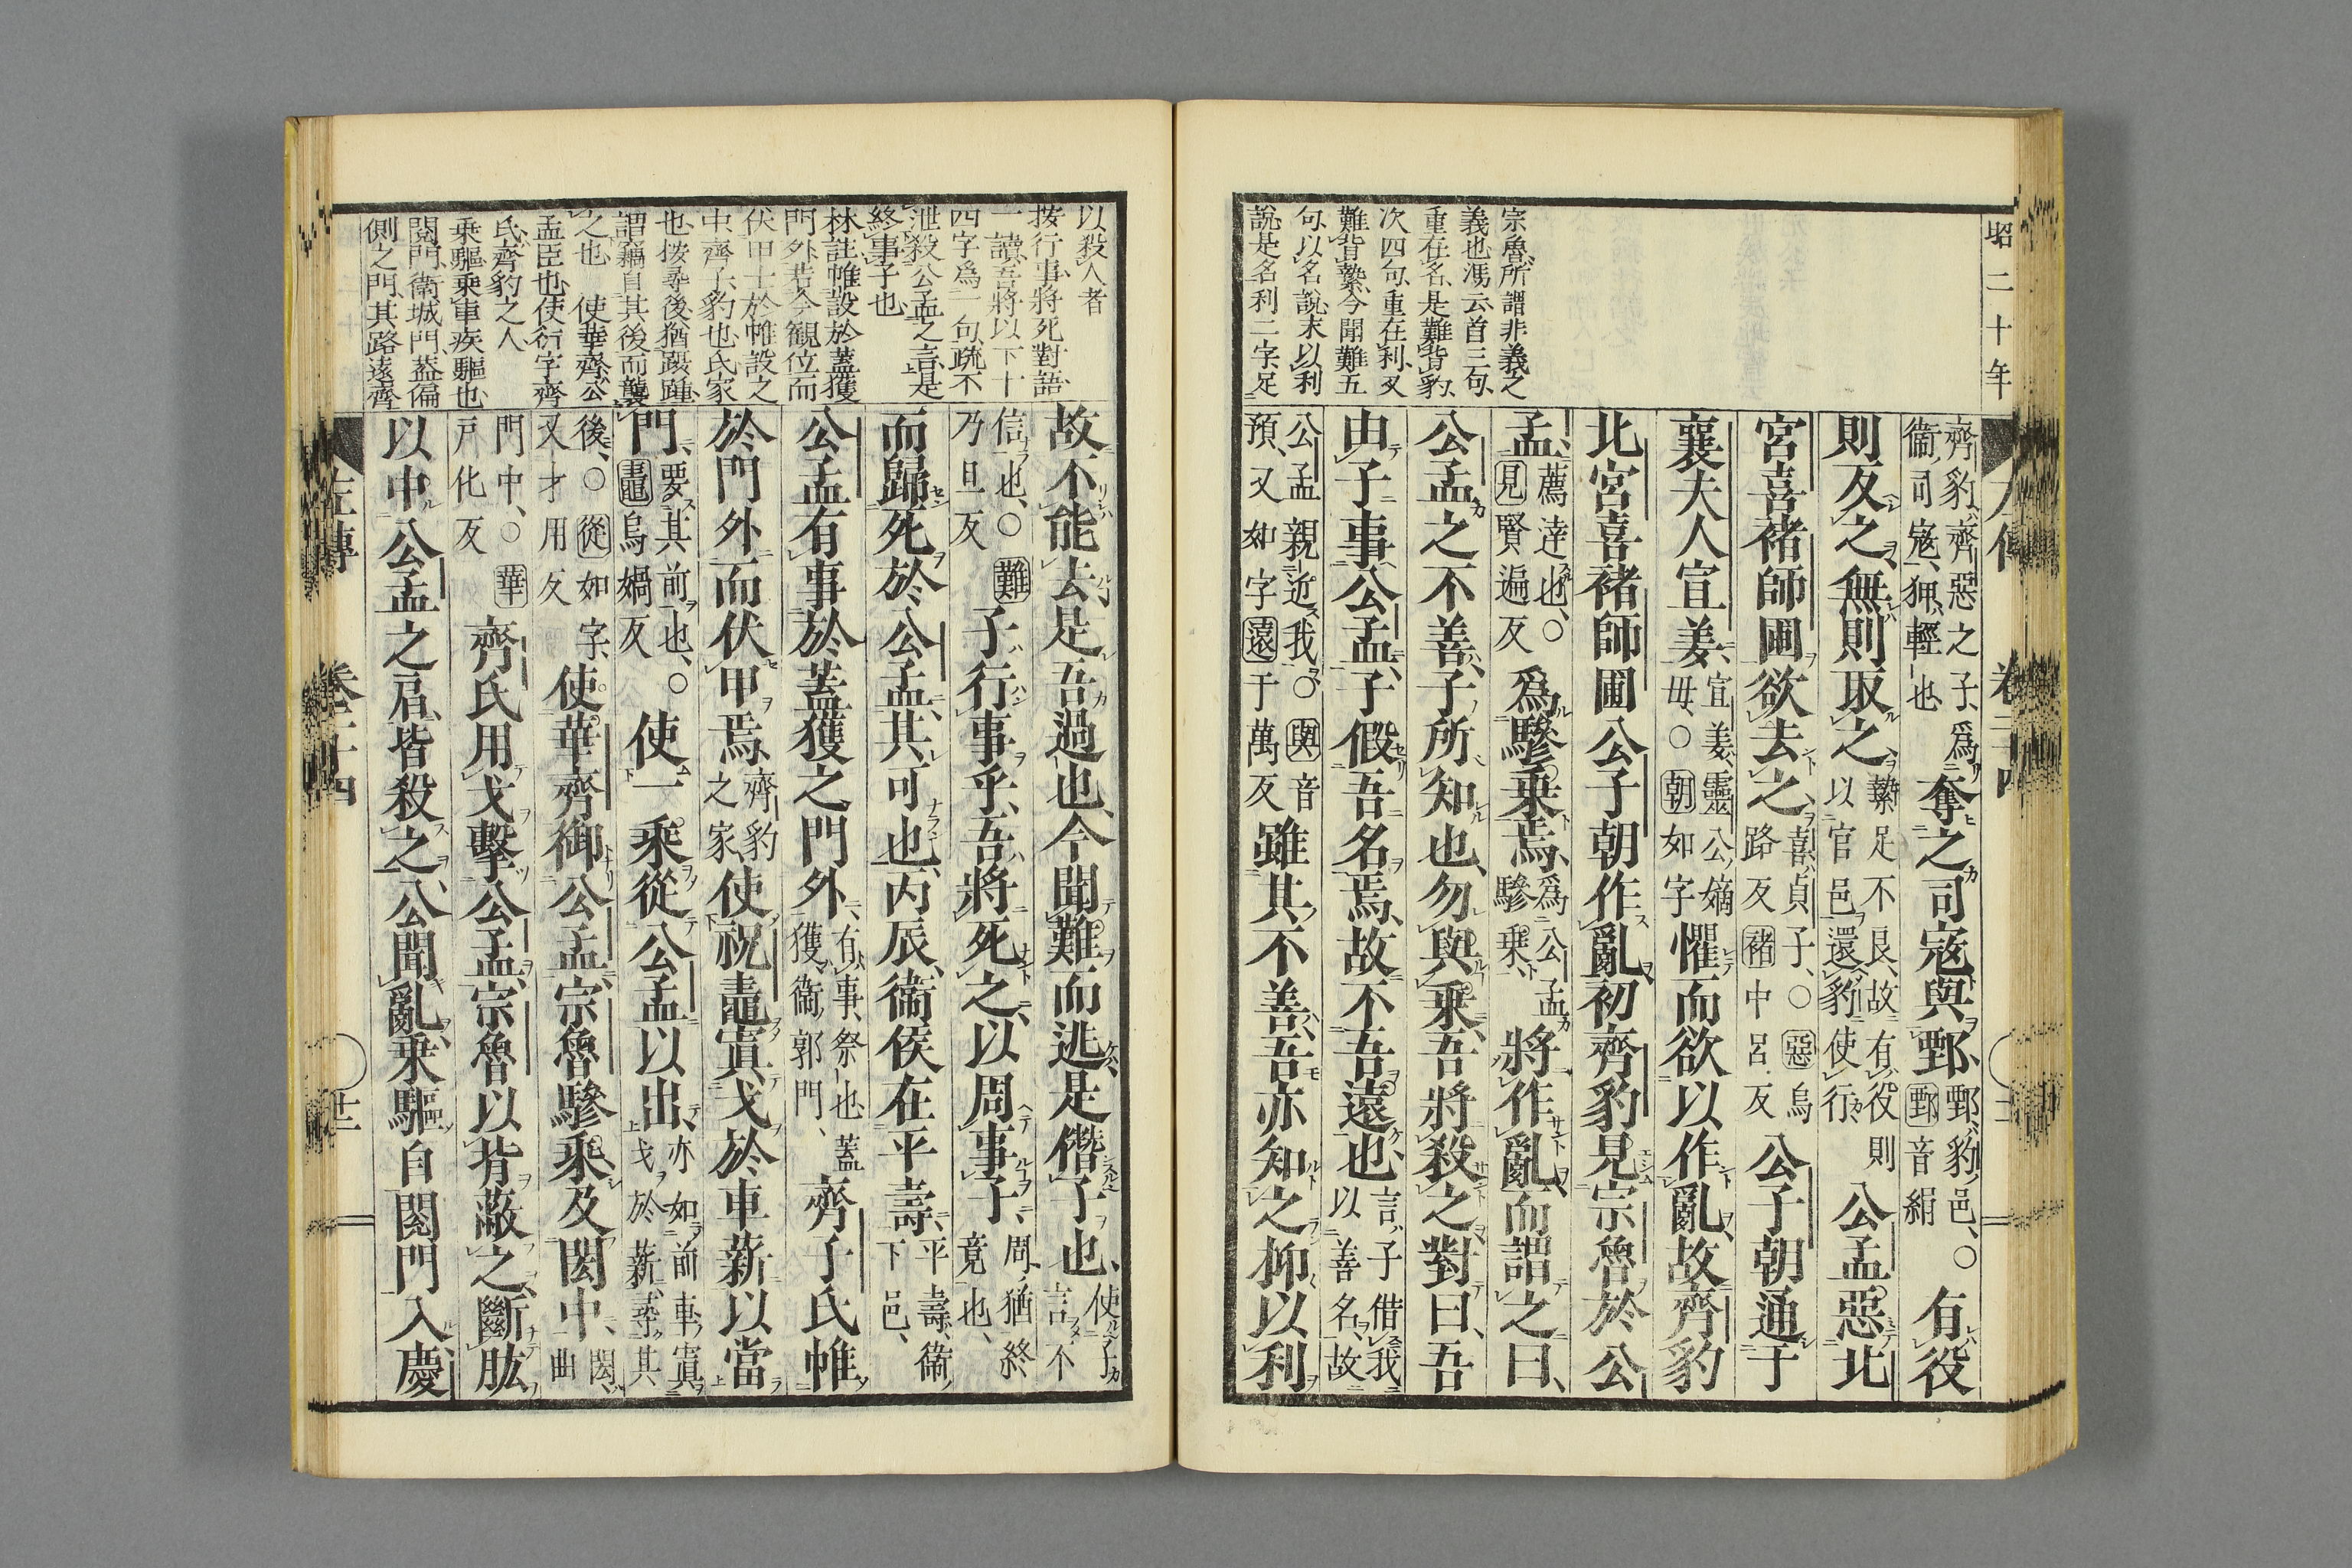 昭二十年
宗魯所謂非義之
義也馮云首三句
重在名是難背豹
次四句重在利又
難背縶今聞難五
句以名說末以利
說是名利二字足
齊豹、齊惡之子、爲衞司寇、狎、輕也、奪之司寇與鄄、鄄、豹邑、○鄄音絹有役
則反之無則取之縶足不良、故有役則以官邑還豹使行公孟惡北
宮喜褚師圃欲去之喜、貞子、○惡烏路反褚中呂反公子朝通于
襄夫人宣姜、宣姜、靈公嫡母、○朝如字懼而欲以作亂故齊豹
北宮喜褚師圃公子朝作亂初齊豹見宗魯於公
孟、薦達也、○見賢遍反爲驂乘焉、爲公孟驂乘、將作亂而謂之曰、
公孟之不善、子所知也、勿與乘、吾將殺之對曰、吾
由子事公孟、子假吾名焉、故不吾遠也、言子借我以善名、故
公孟親近我○與音預、又如字遠于萬反雖其不善、吾亦知之抑以利
以殺人者
按行事將死對語
一讀吾將以下十
四字爲一句疏不
泄殺公孟之言是
終事子也
林註帷設於蓋獲
門外若今觀位而
伏甲士於帷設之
中齊子豹也氏家
也按尋後猶躡踵
謂竊自其後而襲
之也 使華齊公
孟臣也使衍字齊
氏齊豹之人
乘驅乘車疾驅也
閱門衞城門蓋偏
側之門其路遠齊
故不能去是吾過也、今聞難而逃是僭子也、使子言不
信也、○難乃旦反子行事乎、吾將死之、以周事子、周、猶終竟也、
而歸死於公孟、其可也、丙辰、衞侯在平壽、平壽、衞下邑、
公孟有事於蓋獲之門外、有事、祭也、蓋獲、衞郭門、齊子氏帷
於門外而伏甲焉、齊豹之家、使祝鼃寘戈於車薪以當
門、要其前也、○鼃烏媧反使一乘從公孟以出、亦如前車寘戈於薪、尋其
後、○從如字、又才用反使華齊御公孟宗魯驂乘及閎中、閎、曲
門中、○華戶化反齊氏用戈擊公孟、宗魯以背蔽之、斷肱
以中公孟之肩、皆殺之、公聞亂、乘驅自閱門入慶
左傳 卷二十四